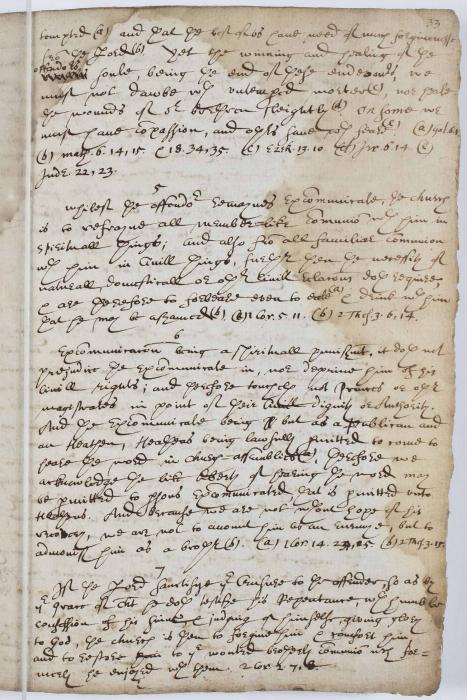 33
tempted (a) and that the best of us have need of much forgivenesse
from the Lord (b) Yet the winning and healing of the
offenders soule, being the end of these endevors, we
must not dawbe wth untempered morter (c), nor heale
the wounds of or brethren sleightly (d) On some we
must have compassion, and others save wth feare (e) (a) gal. 6. 1
(b) math. 6. 14, 15. c 18. 34, 35. (c) Ezek. 13. 10. (d) Jer. 6. 14 (e)
Jude. 22, 23.
5
Whilest the offendr remaynes excommunicate, the church
is to refrayne all member-like communiō wth him in
spirituall things; and also frō all familier commuion
wth him in civill things, further then the necessity of
naturall, domesticall or other civill relacons doth require,
& are therefore to forbeare even to eate (a) & drink wth him
that he may be ashamed (b) (a) 1 Cor. 5. 11. (b) 2 Thes. 3. 6, 14.
6
Excommunicacōn being a spirituall punishmt, it doth not
prejudice the excommunicate in, nor deprive him of his
civill rights; and therfore toucheth not Princes or other
magistrates in point of their dignity or Authority.
And the excommunicate being but as a Publican and
an Heathen, Heathens being lawfully pmitted to come to
heare the word in church-assemblies (a); therfore we
acknowledge the like liberty of hearing the word may
be pmitted to psons excommunicated, that is pmitted unto
Heathens. And because we are not wthout hope of his
recovery, we are not to account him as an enemye, but to
admonish him as a brother (b). (a) 1 Cor. 14. 24, 25 (b) 2 Thes. 3. 15.
7
If the Lord sanctifye ye censure to the offender, so as by
ye grace of Christ he doth testifie his Repentance, wth humble
confession of his sinne & judging of himselfe, giving glory
to God, the church is then to forgive him & comfort him
and to restore him to ye wonted brotherly communiō wch for-
merly he enjoyed wth them. 2 Cor. 2 7, 8